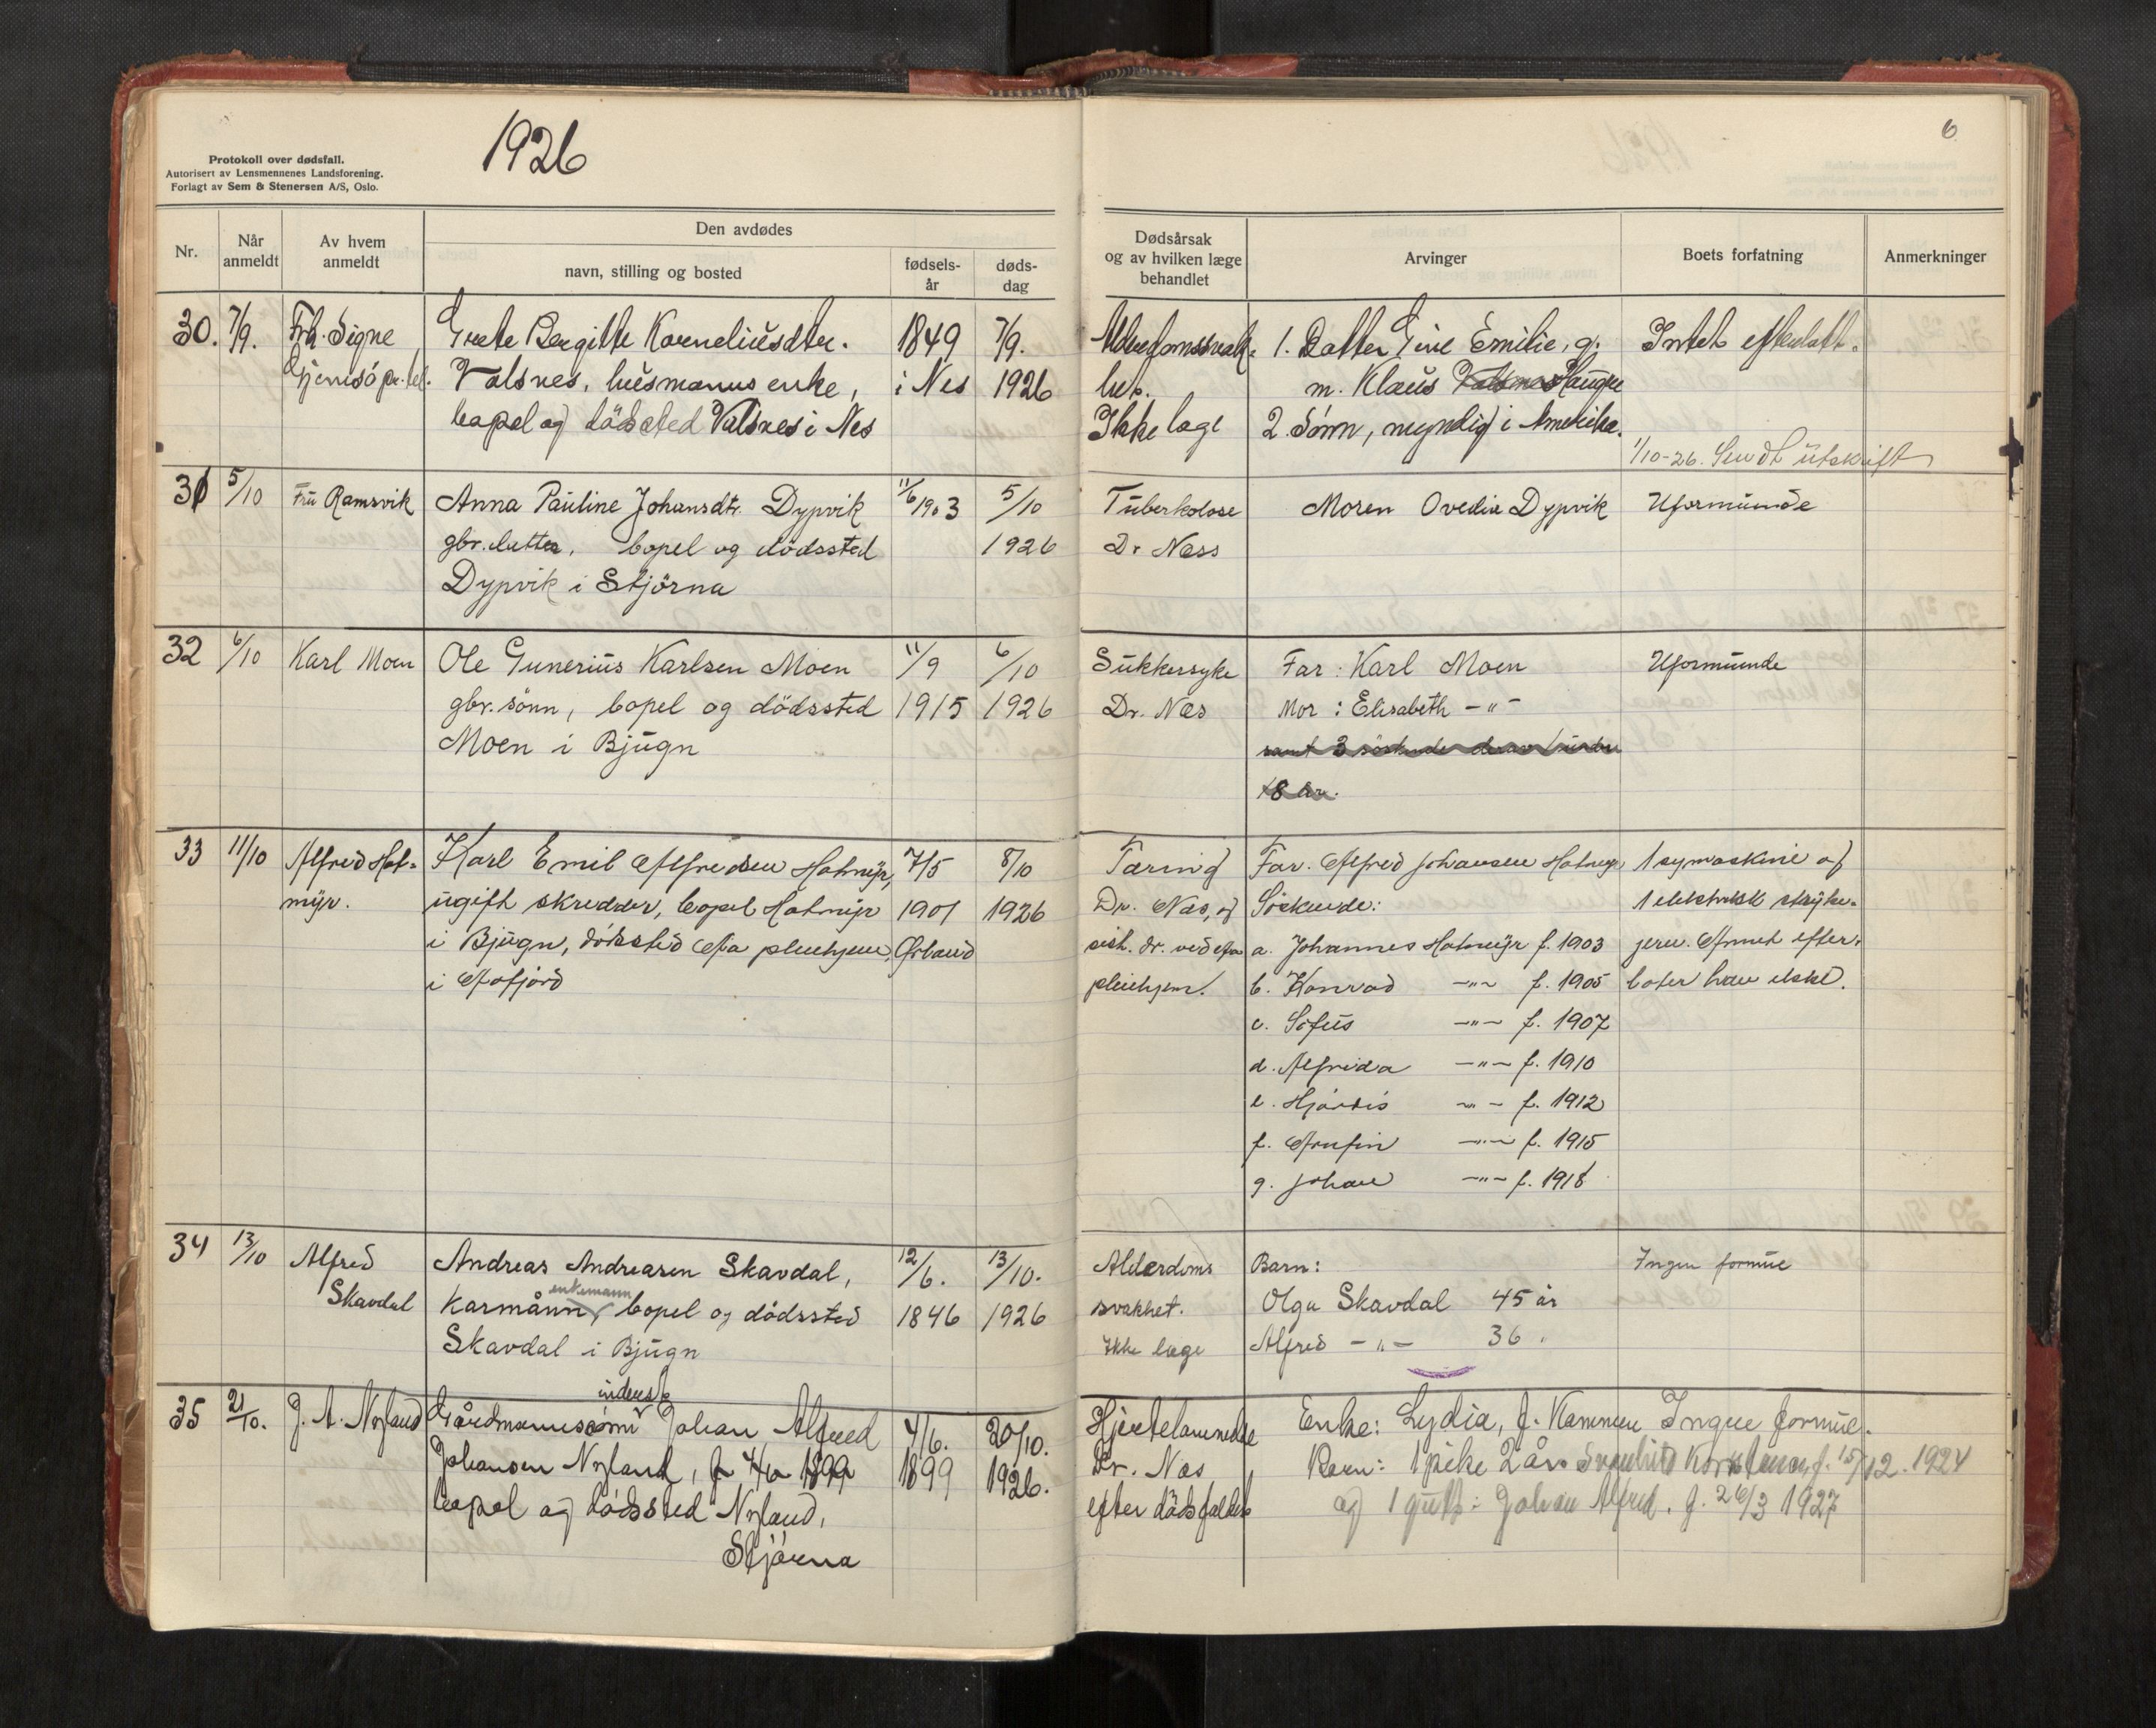 Protokoll over dødsfall.
Autorisert av Lensmennenes Landsforening.
Forlagt av Sem & Stenersen A/S, Oslo.
1926
6
Nr.
Når anmeldt
Av hvem anmeldt
Den avdødes
navn, stilling og bosted
fødsels-år
døds-dag
Dødsårsak og av hvilken læge behandlet
Arvinger
Boets forfatning
Anmerkninger
30. 7/9. Frk. Signe Grete Bergitte Korneliusdtr. 1849 7/9. Alderdomssvak- 1. Datter Gine Emilie, g. Intet efterlatt.
pr. tel. Valsnes, husmanns enke, i Nes 1926 het. m. Klaus Haugen
bopel og dödssted Valsnes i Nes Ikke læge 2. Sönn, myndig i Amerika.
1/10-26. Sendt utskrift
31 5/10 Fru Ramsvik Anna Pauline Johansdtr. Dypvik 11/6 1903 5/10 Tuberkolose Moren Ovedia Dypvik Uformuende
gbr. datter, bopel og dödssted 1926 Dr Næss
Dypvik i Stjörna
32 6/10 Karl Moen Ole Gunerius Karlsen Moen 11/9 6/10 Sukkersyke Far: Karl Moen Uformuende
gbr. sönn, bopel og dödssted 1915 1926 Dr. Næs Mor: Elisabeth -"-
Moen i Bjugn samt 3 söskende derav 1 under
18 år.
33 11/10 Alfred Hot- Karl Emil Alfredsen Hotmyr, 7/5 8/10 Tæring Far. Alfred Johansen Hotmyr 1 symaskine og
myr. ugift skredder, bopel Hotmyr 1901 1926 Dr. Næs, og Söskende: 1 elektrisk stryke-
i Bjugn, dödssted Aa pleiehjem, Ørland sist. dr. ved Aa a. Johannes Hotmyr f. 1903 jern. Annet efter-
i Aafjord pleiehjem. b. Konrad -"- f. 1905 later han ikke.
c. Sofus -"- f. 1907
d. Alfrida -"- f. 1910
e. Hjördis -"- f. 1912
f. Arnfin -"- f. 1915
g. Johan -"- f. 1918
34 13/10 Alfred Andreas Andreasen Skavdal, 12/6. 13/10. Alderdoms Barn: Ingen formue
enkemann
Skavdal Kårmånn, bopel og dödssted 1846 1926 svakhet. Olga Skavdal 45 år
Skavdal i Bjugn Ikke læge Alfred -"- 36 "
inderst
35 21/10. J. A. Nyland Gårdmannssönn Johan Alfred 4/6. 20/10. Hjertelammelse Enke: Lydia, f. Ingen formue.
Johansen Nyland, f 4/6 1899 1899 1926. Dr. Næs Barn: 1 pike 2 år f. 15/12. 1924
bopel og dödssted Nyland, efter dödsfallet og 1 gutt: Johan Alfred. f. 26/3 1927
Stjörna